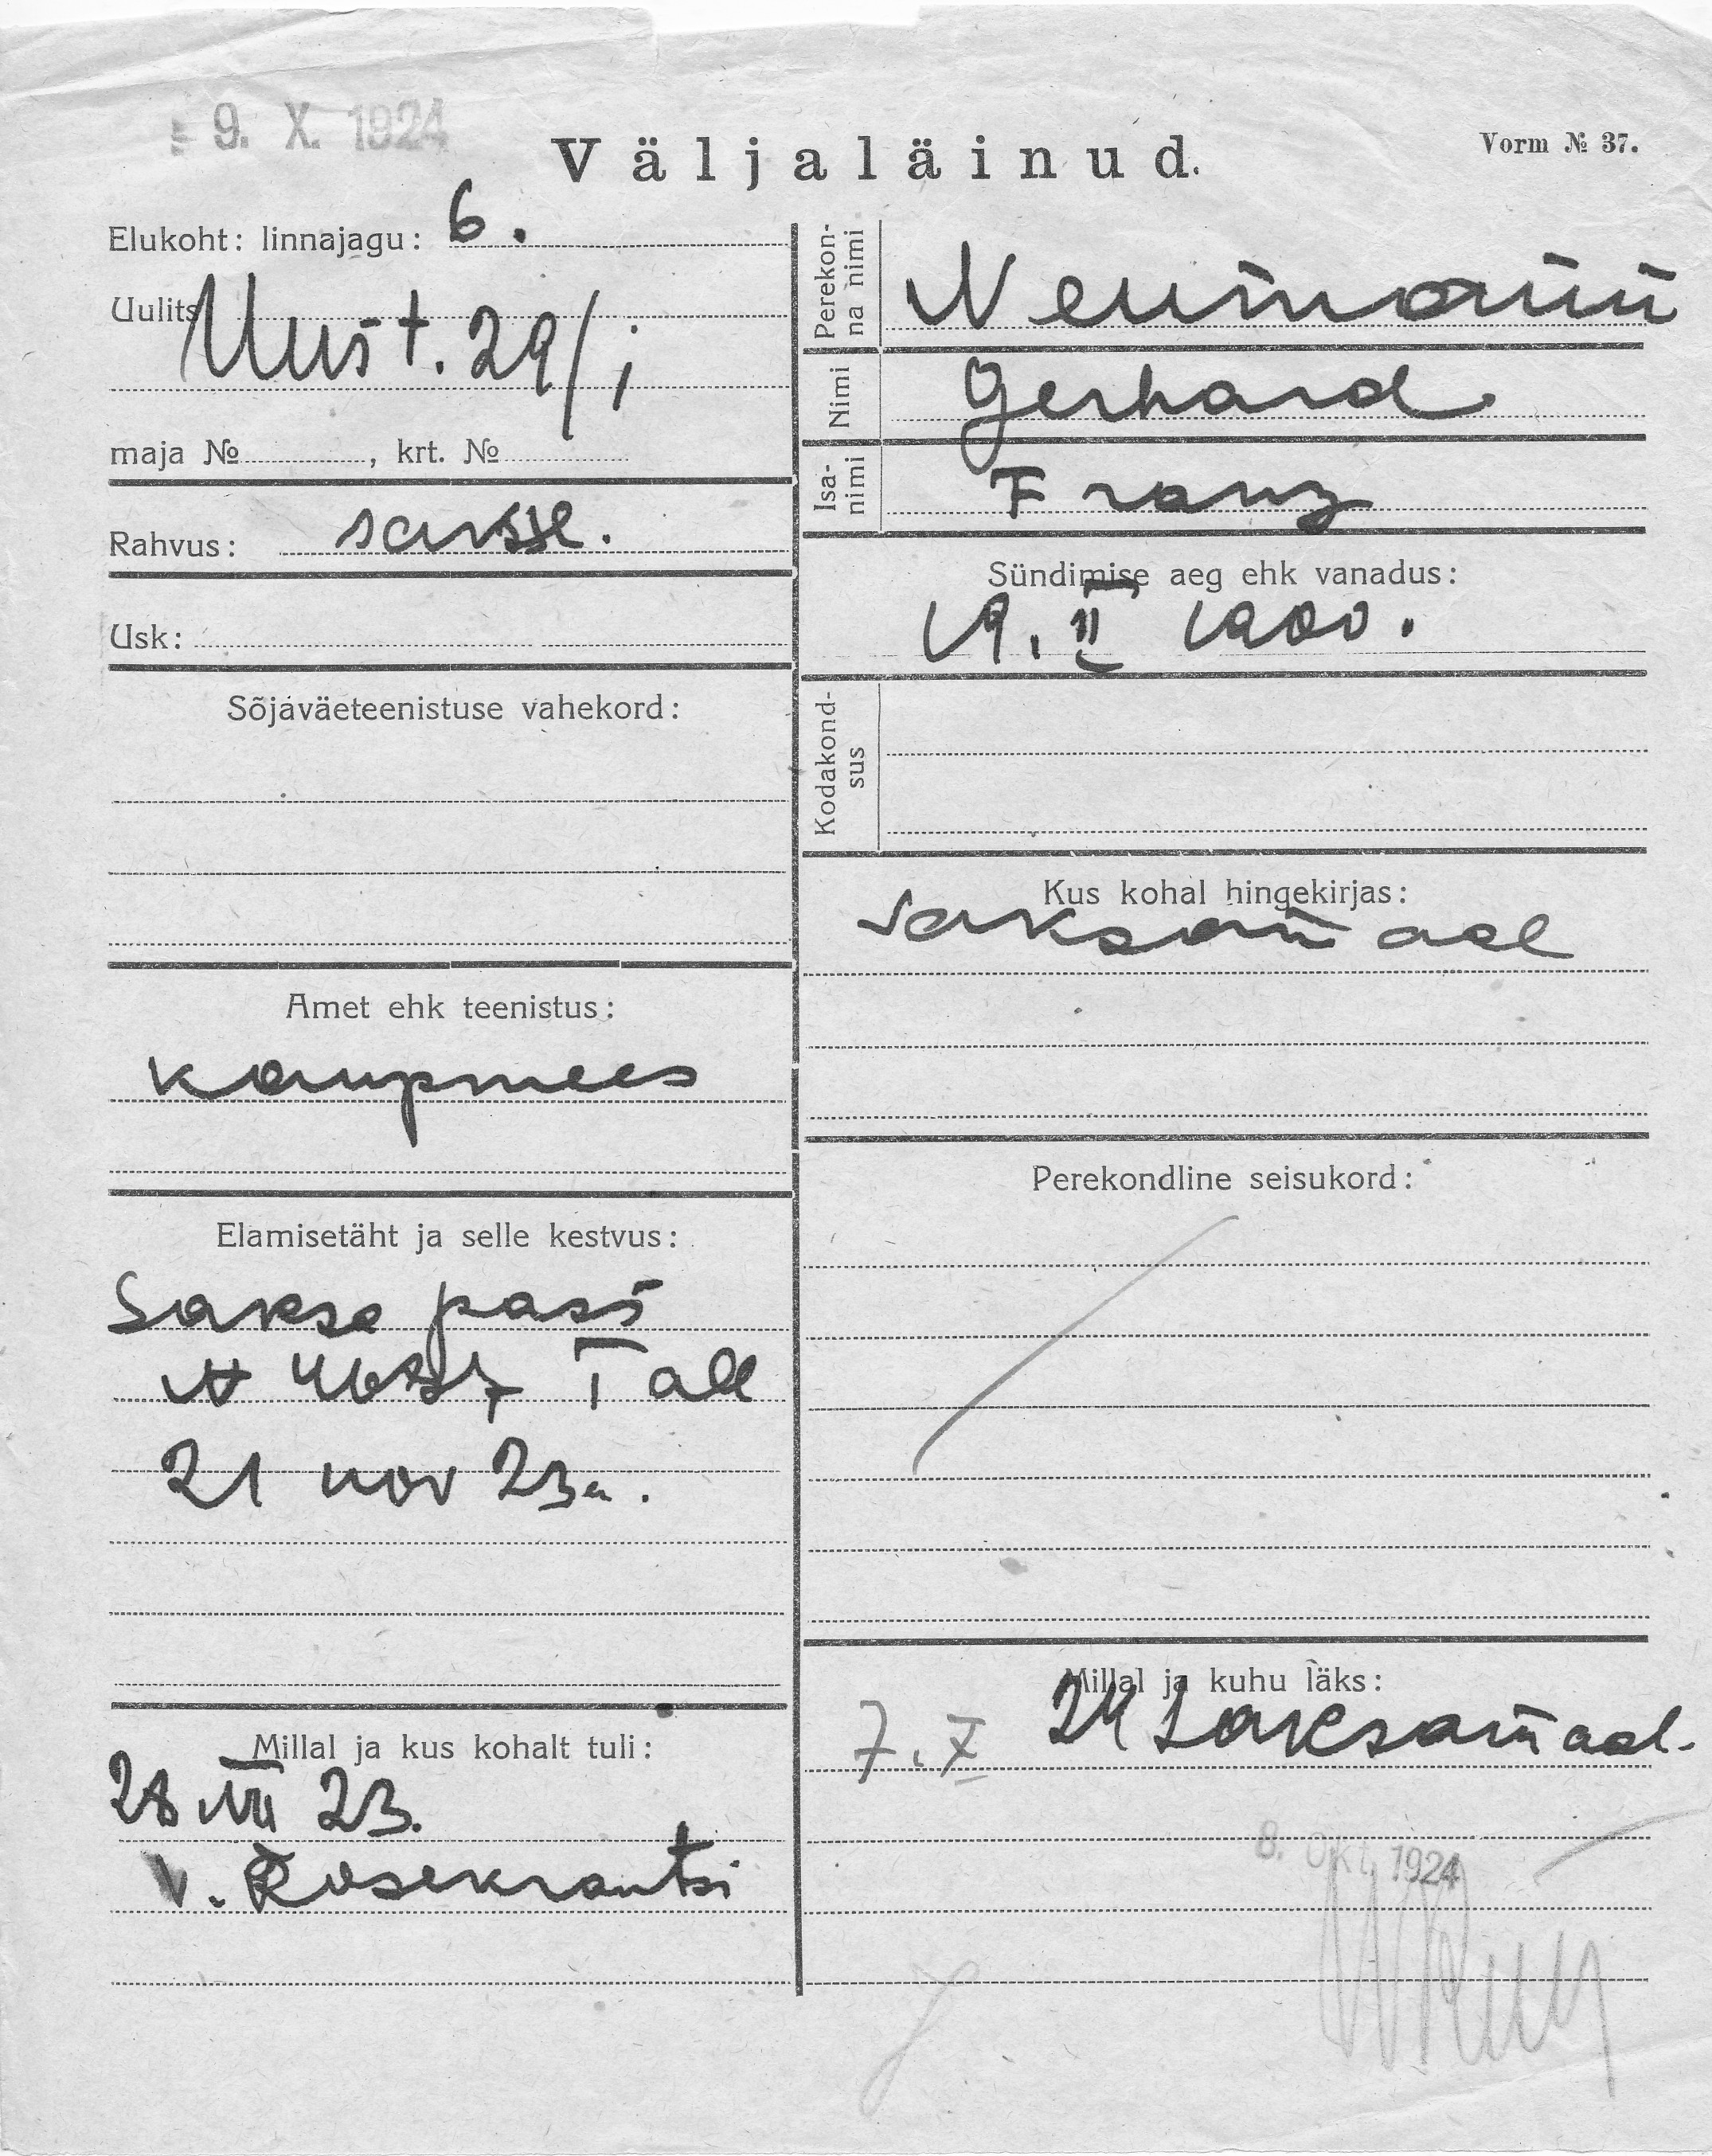 9. X. 1924
Väljaläinud.
Vorm № 37.
Elukoht: linnajagu: 6.
Uulits
Uus t. 29/1
maja № , krt. №
Rahvus: sakse.
Usk:
Sõjaväeteenistuse vahekord:
Amet ehk teenistus:
kaupmees
Elamisetäht ja selle kestvus:
Sakse pass
Tall
21 nov 23 a.
Millal ja kus kohalt tuli:
28 VIII 23.
v. Rosekrantsi
Perekonna nimi
Neumann
Nimi
Gerhard
Isanimi
Franz
Sündimise aeg ehk vanadus:
19. II 1900.
Kodakondsus
Kus kohal hingekirjas:
saksamaal
Perekondline seisukord:
Millal ja kuhu läks:
7. X 24 Saksamaal.
8. Okt. 1924